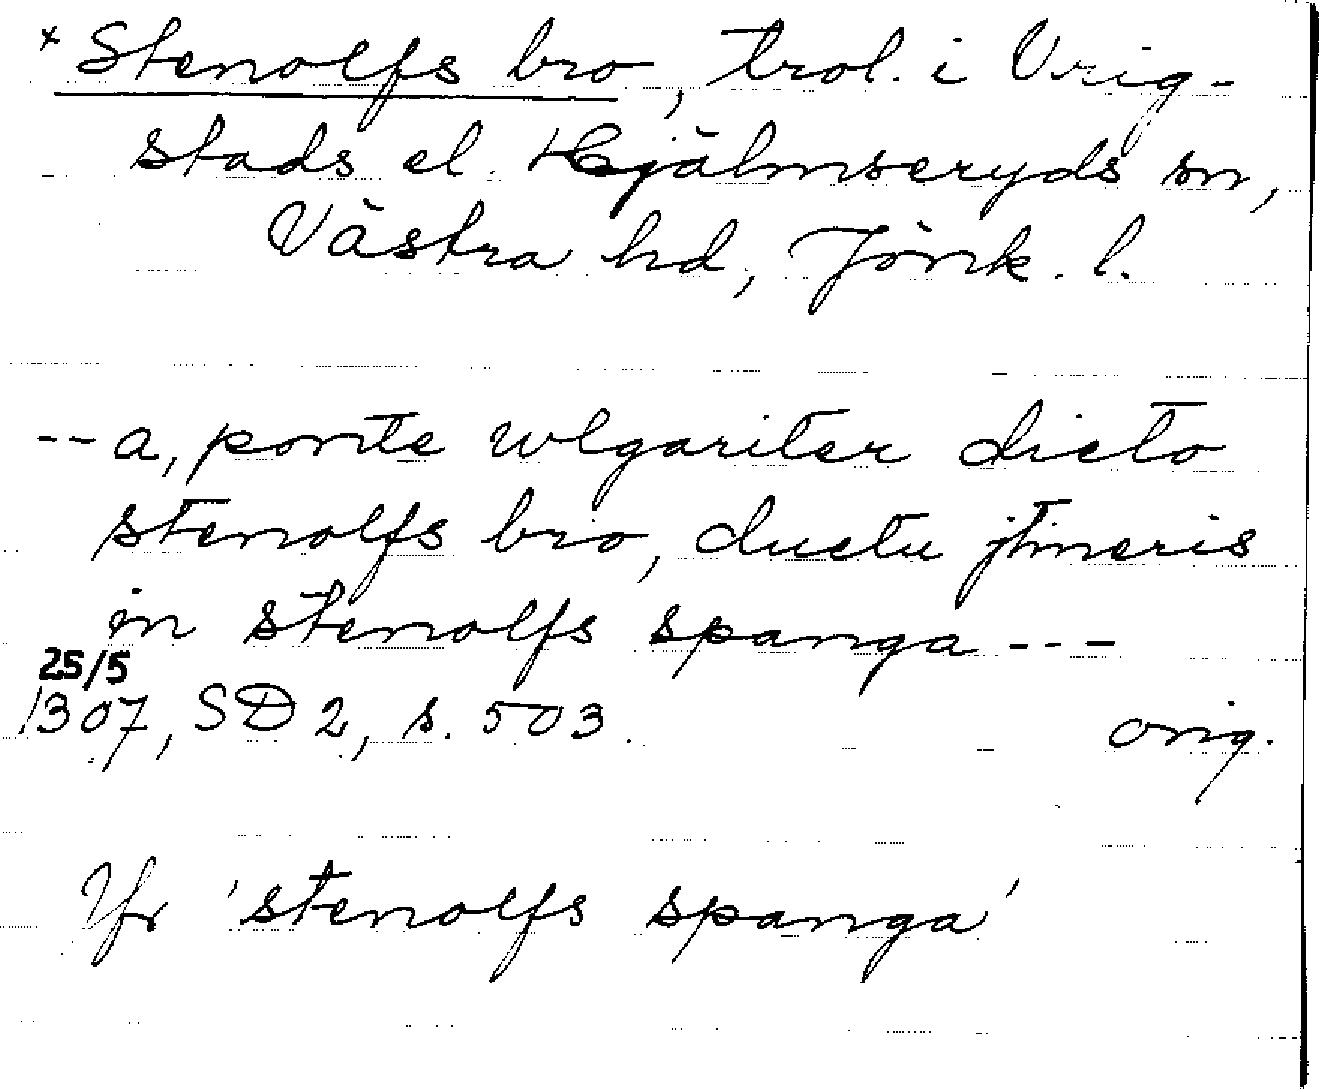 * Stenolfs bro, trol. i Vrig-
stads el. Hjälmseryds sn,
Västra hd, Jönk. l.
-- a, ponte wlgariter dicto
stenolfs bro, ductu jtineris
in stenolfs spanga ---
25/5
1307, SD 2, s. 503. orig.
Jfr 'stenolfs spanga'